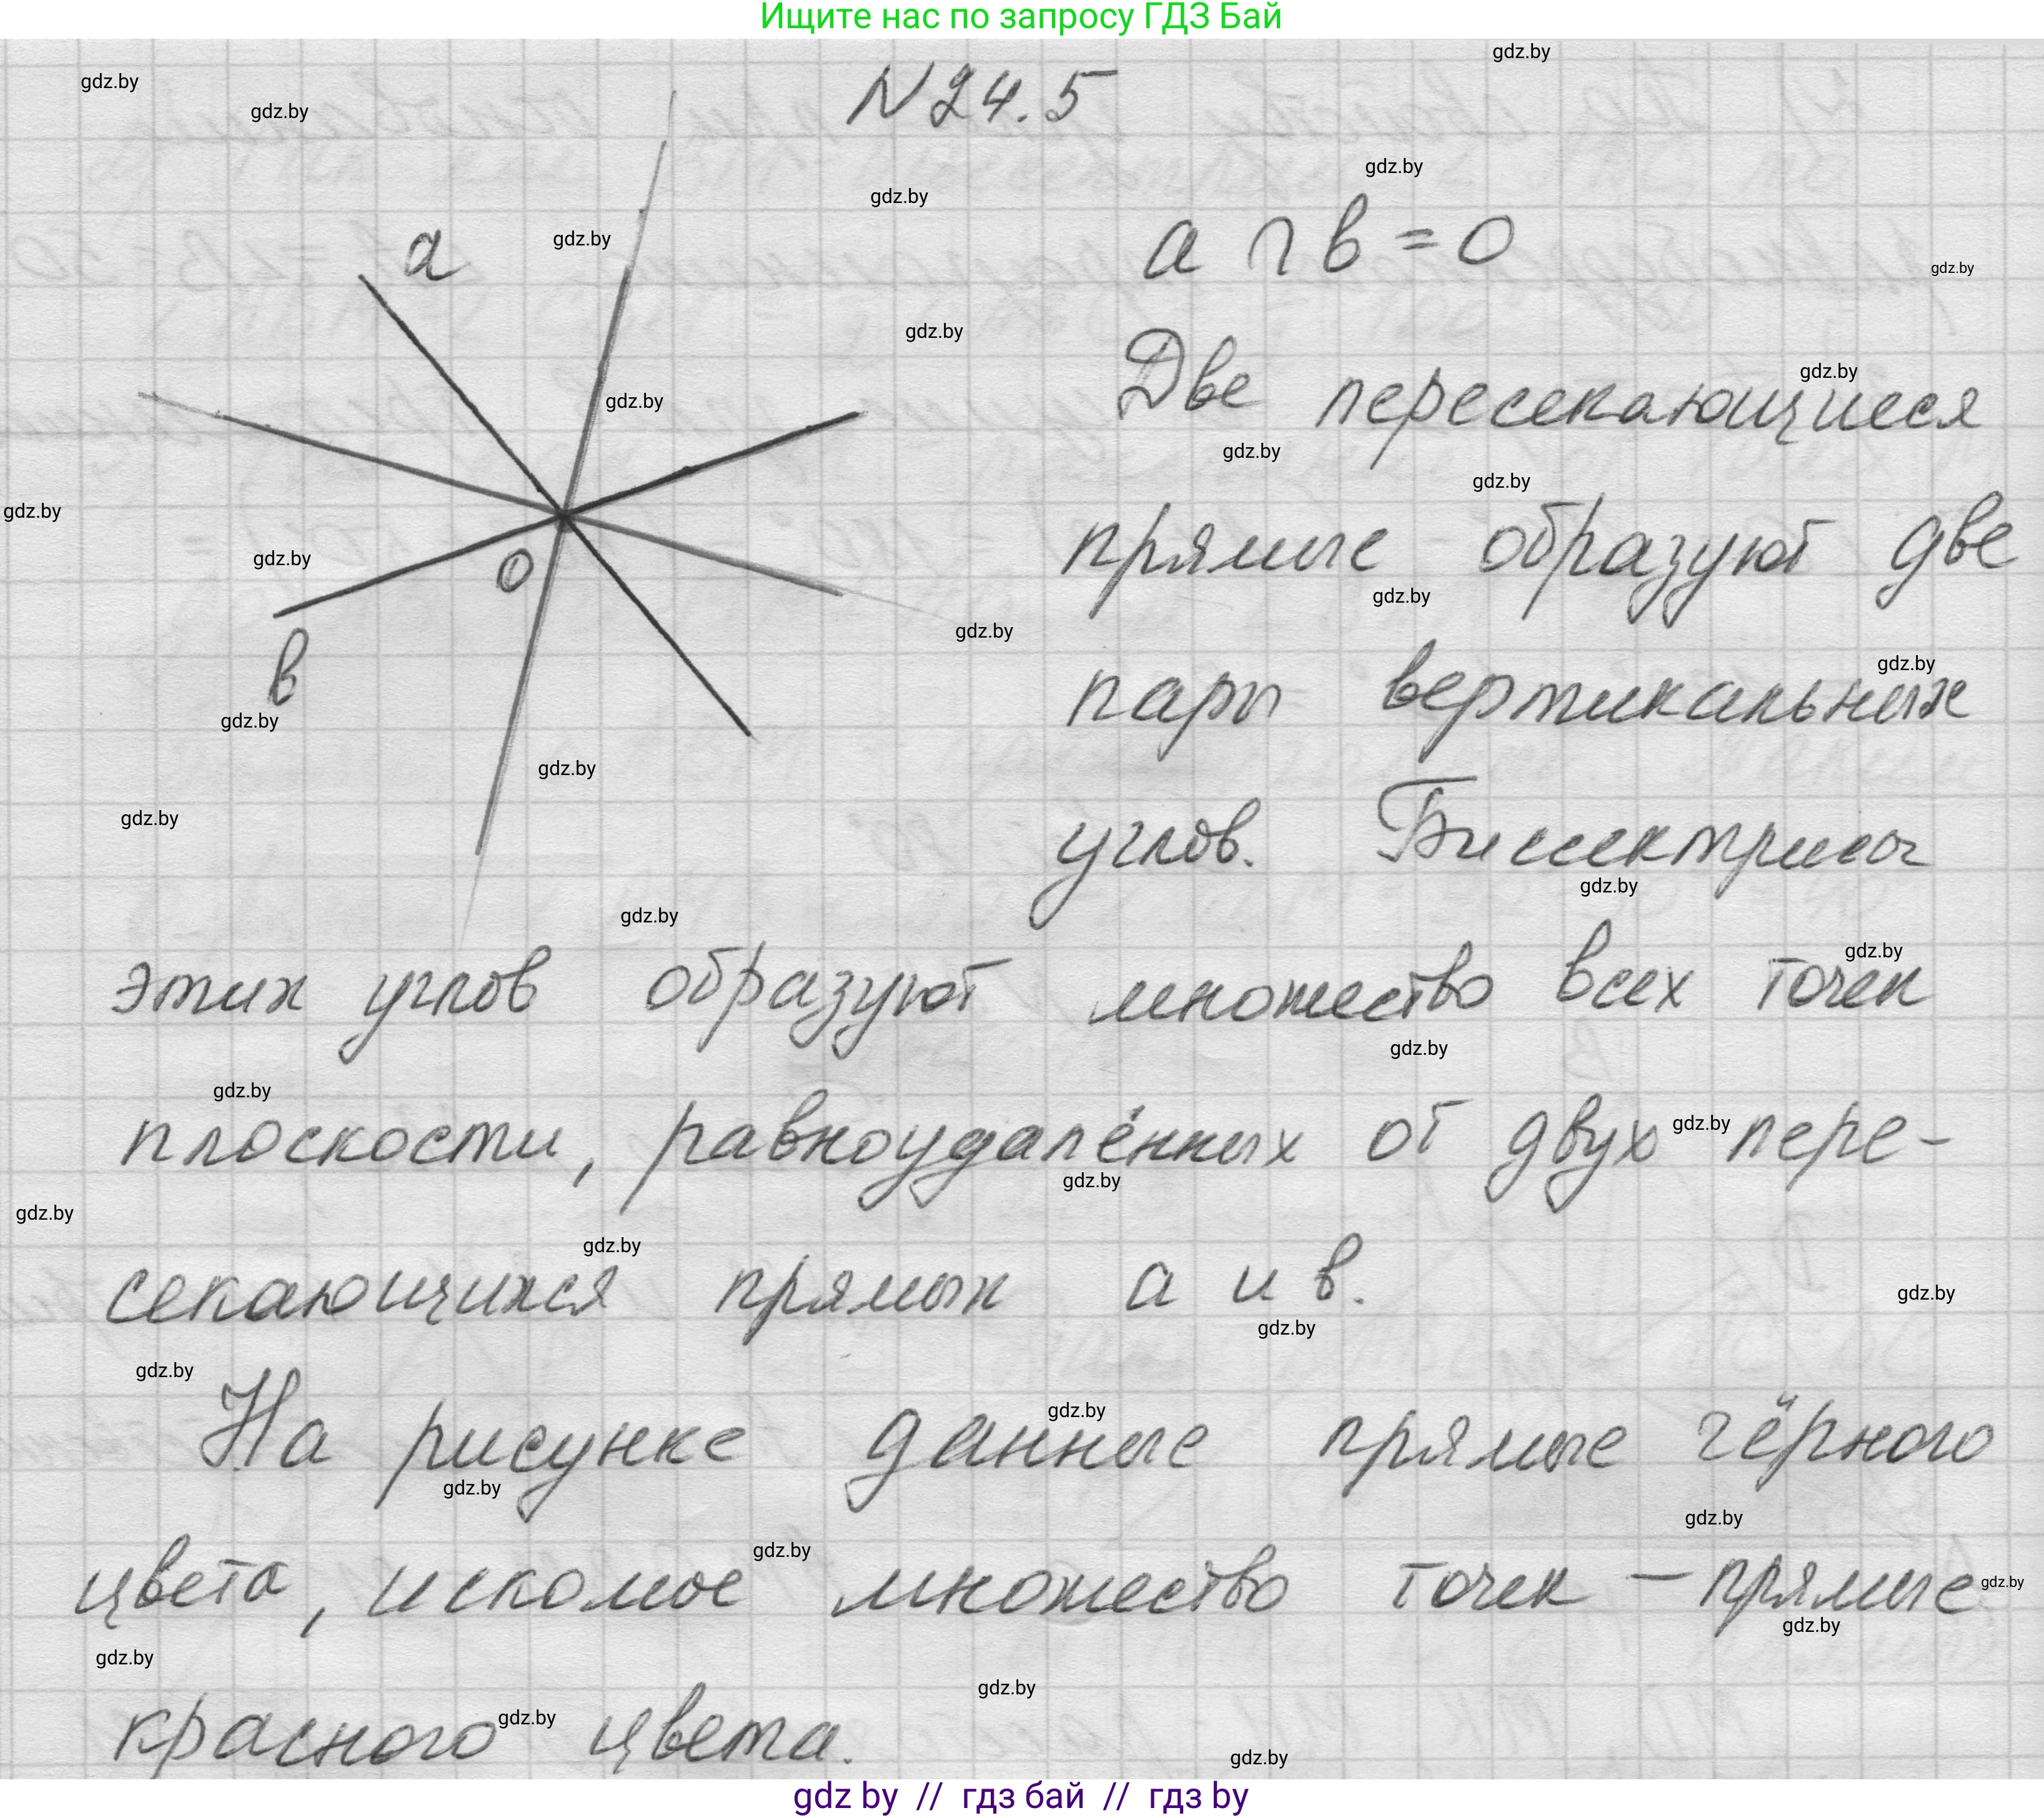 Ищите нас по запросу ГДЗ Бай
N 24.5
a
a ∩ b = O
Две пересекающиеся
прямые образуют две
O
b
пары вертикальных
углов. Биссектрисы
этих углов образуют множество всех точек
плоскости, равноудалённых от двух пере-
секающихся прямых a и b.
На рисунке данные прямые чёрного
цвета, искомое множество точек — прямые
красного цвета.
gdz by // гдз бай // гдз by
gdz.by